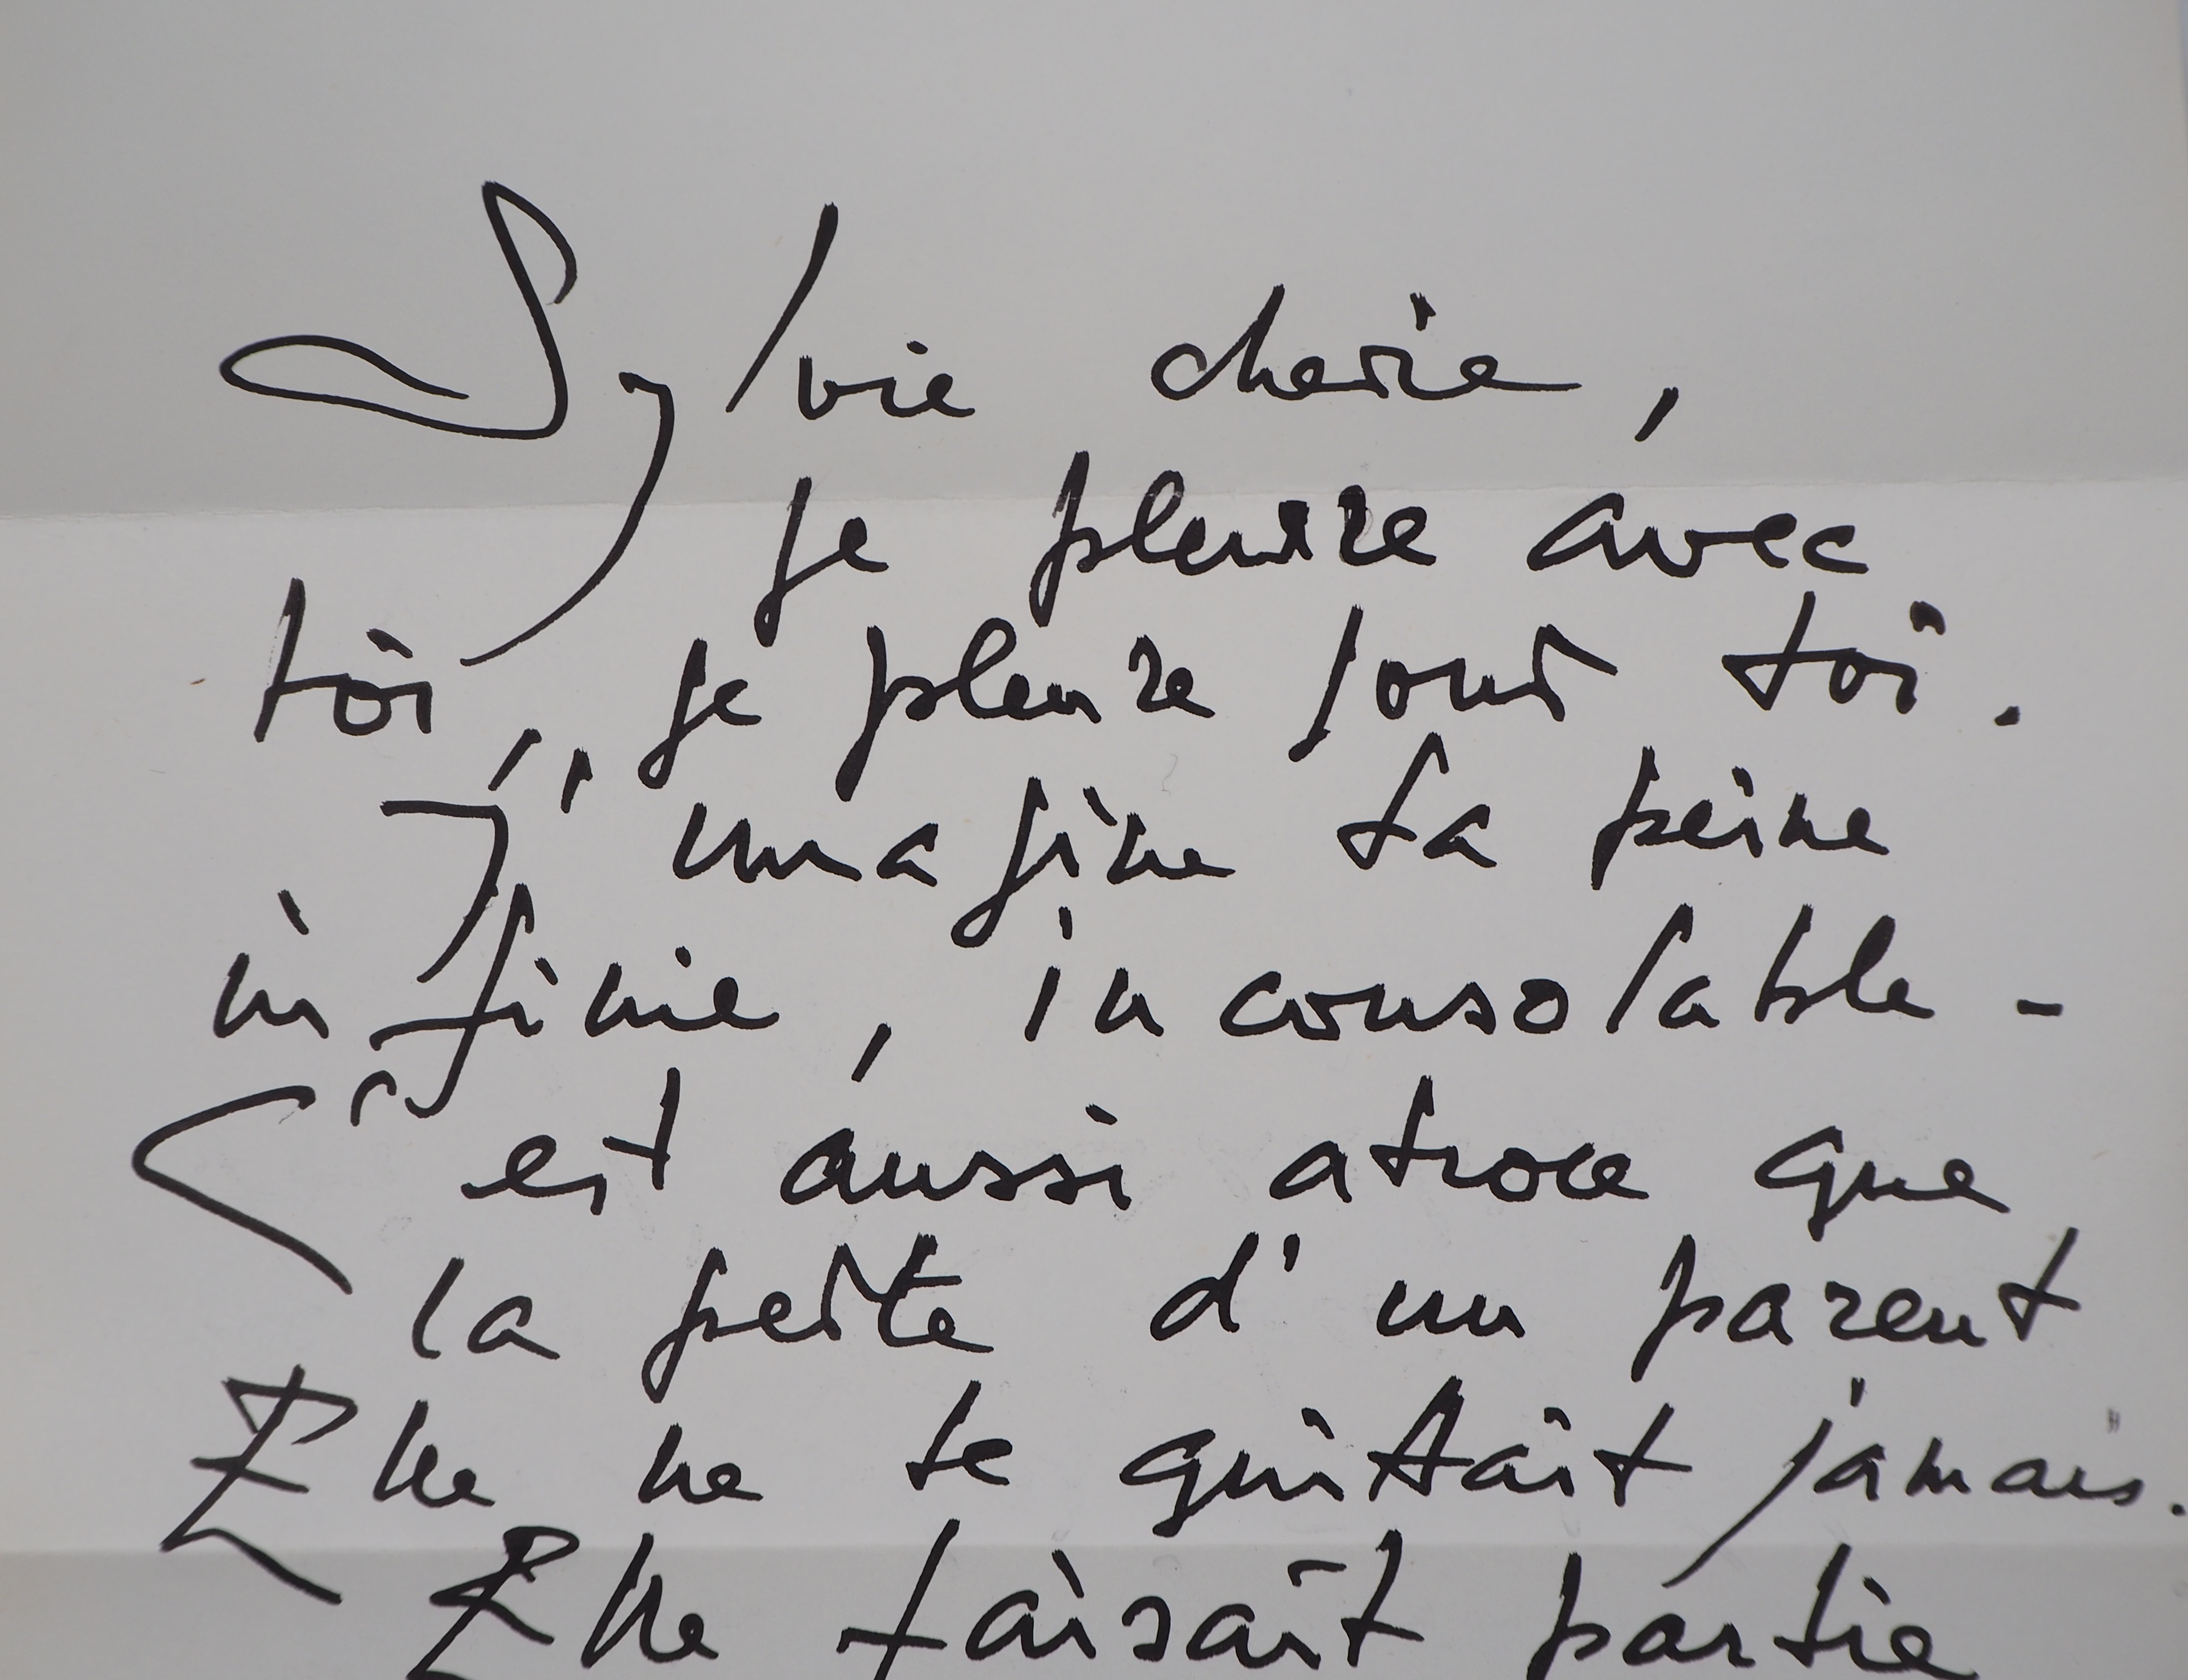 Sylvie cherie,
je pleure avec
toi, je pleure pour toi.
J'imagine ta peine
infinie, inconsolable -
C'est aussi atroce que
la perte d'un parent
Elle ne te quittait jamais.
Elle faisait partie